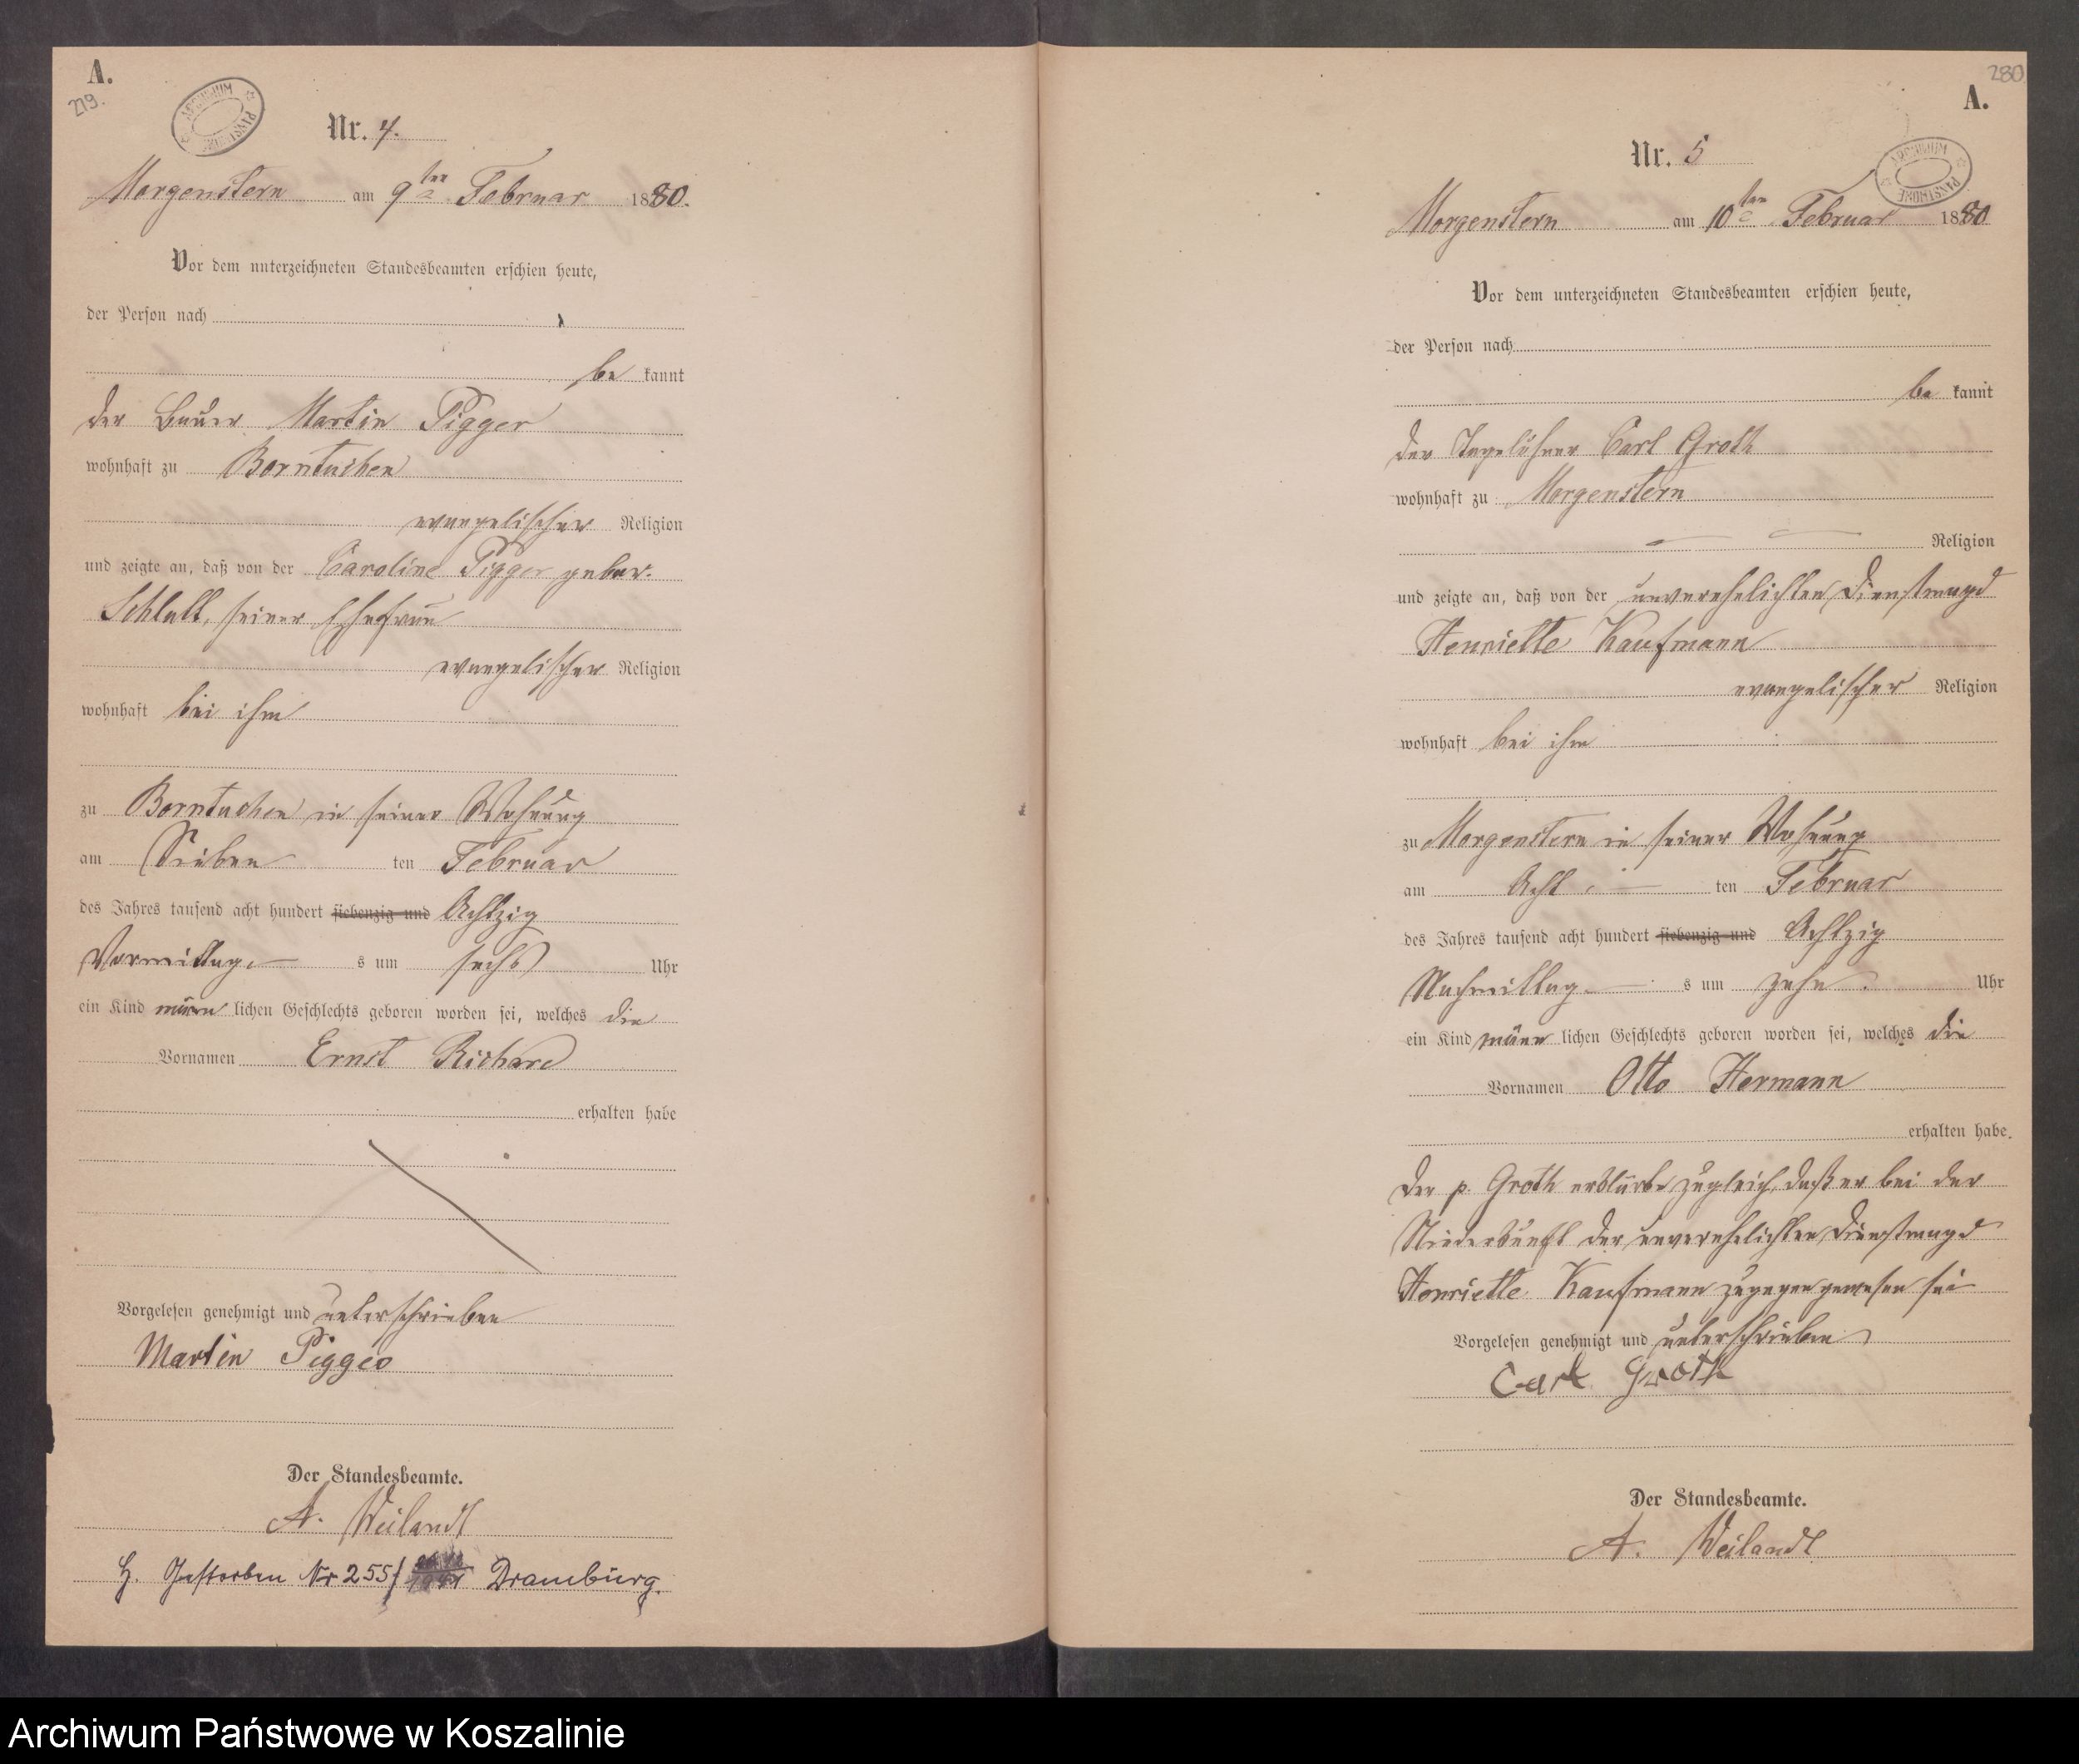 A.
279.
ARCHIWUM PAŃSTWOWE
Nr. 4.
Morgenstern am 9ten Februar 1880.
Vor dem unterzeichneten Standesbeamten erschien heute,
der Person nach
be kannt
der Bauer Martin Pigger
wohnhaft zu Borntuchen
evangelischer Religion
und zeigte an, daß von der Caroline Pigger gebor.
seiner Ehefrau
evangelischer Religion
wohnhaft bei ihm
zu Borntuchen in seiner Wohnung
am Sieben ten Februar
des Jahres tausend acht hundert siebenzig und Achtzig
Vormittag s um sechs Uhr
ein Kind männ lichen Geschlechts geboren worden sei, welches die
Vornamen Ernst Richard
erhalten habe
Vorgelesen genehmigt und unterschrieben
Martin Pigger
Der Standesbeamte.
A. Weilandt
Gestorben Nr 255/ Dramburg.
280
A.
ARCHIWUM PAŃSTWOWE
Nr. 5
Morgenstern am 10ten Februar 1880
Vor dem unterzeichneten Standesbeamten erschien heute,
der Person nach
be kannt
der Tagelöhner Carl Groth
wohnhaft zu Morgenstern
Religion
und zeigte an, daß von der unverehelichten Dienstmagd
Henriette Kaufmann
evangelischer Religion
wohnhaft bei ihm
zu Morgenstern in seiner Wohnung
am Acht ten Februar
des Jahres tausend acht hundert siebenzig und Achtzig
Nachmittag s um zehn Uhr
ein Kind männ lichen Geschlechts geboren worden sei, welches die
Vornamen Otto Hermann
erhalten habe.
Der p. Groth erklärte zugleich, daß er bei der
Niederkunft der unverehelichten Dienstmagd
Henriette Kaufmann zugegen gewesen sei
Vorgelesen genehmigt und unterschrieben
Carl Groth
Der Standesbeamte.
A. Weilandt
Archiwum Państwowe w Koszalinie